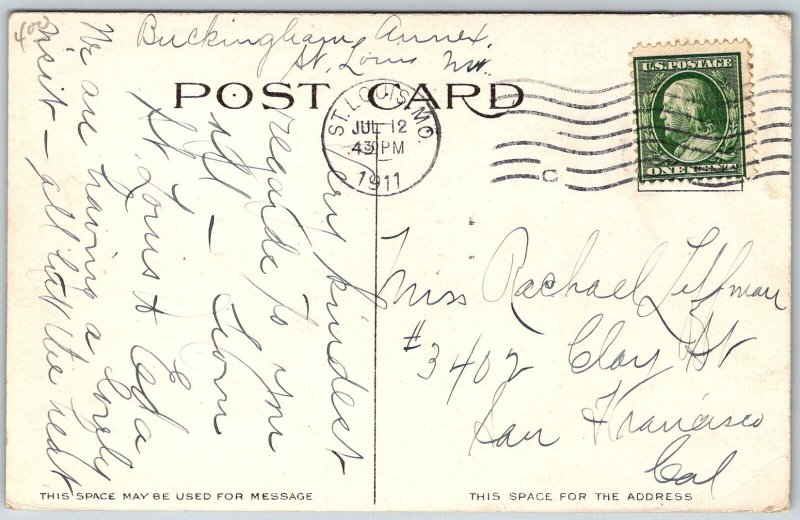 400
Buckingham Annex
St. Louis Mo.
POST CARD
We are having a lovely
visit – all but the heat
St. Louis &
Very kindest
regards to you
all – From
ST. LOUIS, MO.
JUL 12
430 PM
1911
C
U.S. POSTAGE
ONE CENT
Miss Rachael
#3402 Clay St
San Francisco
Cal
THIS SPACE MAY BE USED FOR MESSAGE
THIS SPACE FOR THE ADDRESS